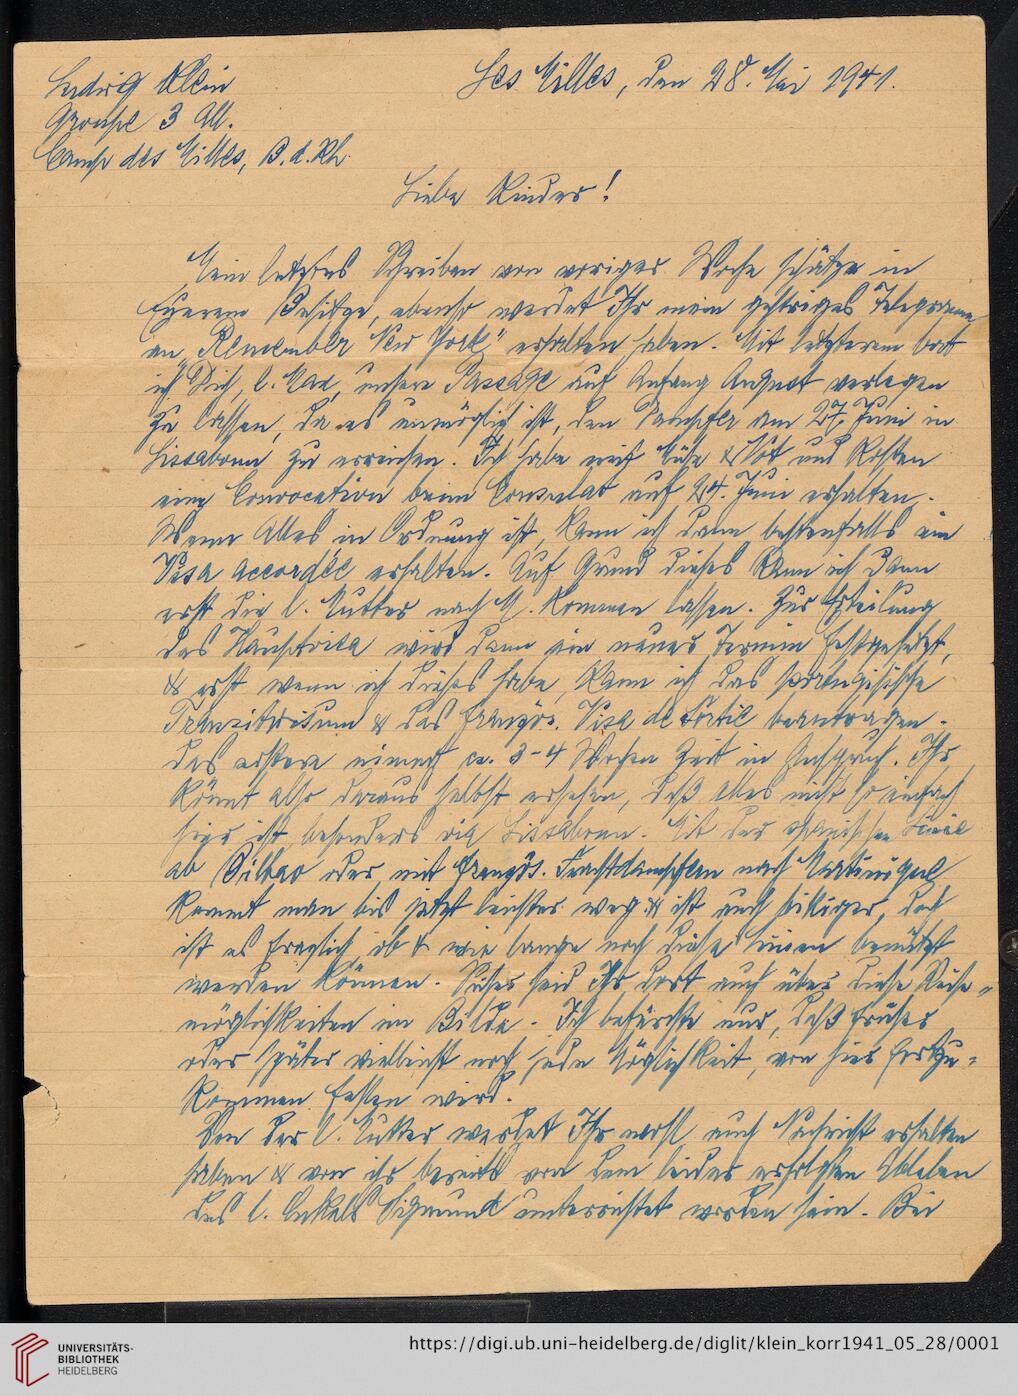 Ludwig Klein
Groupe 3 All.
Camp des Milles, B.d.Rh.
Les Milles, den 28. Mai 1941.
Liebe Kinder!
Mein letztes Schreiben von voriger Woche schätze in
Euerem Besitze, ebenso werdet Ihr mein gestriges Telegramm
an „Remember New York" erhalten haben. Mit letzterem bat
ich Dich, l. Max, unsere Passage auf Anfang August verlegen
zu lassen, da es unmöglich ist, den Dampfer am 27. Juni in
Lissabonn zu erreichen. Ich habe mit Mühe & Not und Kosten
eine Convocation beim Consulat auf 24. Juni erhalten.
Wenn Alles in Ordnung ist, kann ich dann bestenfalls ein
Visa accordée erhalten. Auf Grund dieses kann ich dann
erst die l. Mutter nach M. kommen lassen. Zur Erteilung
des Hauptvisa wird dann ein neuer Termin festgesetzt,
& erst wenn ich dieses habe, kann ich das portugisische
Transitvisum & das französ. Visa de Sortie beantragen.
Das erstere nimmt ca. 3-4 Wochen Zeit in Anspruch. Ihr
könnt also daraus selbst ersehen, daß alles nicht so einfach
hier ist besonders via Lissabonn. Mit der spanischen Linie
ab Bilbao oder mit französ. Frachtdampfern nach Martinique
kommt man bis jetzt leichter weg & ist auch billiger, doch
ist es fraglich, ob & wie lange noch diese Linien benützt
werden können. Sicher seid Ihr dort auch über diese Reise-
möglichkeiten im Bilde. Ich befürchte nur, daß früher
oder später vielleicht noch jede Möglichkeit, von hier fortzu-
kommen fallen wird.
Von der l. Mutter werdet Ihr wohl auch Nachricht erhalten
haben & von ihr bereits von dem leider erfolgten Ableben
des l. Onkels Sigmund unterrichtet worden sein. Bei
UNIVERSITÄTS-
BIBLIOTHEK
HEIDELBERG
https://digi.ub.uni-heidelberg.de/diglit/klein_korr1941_05_28/0001